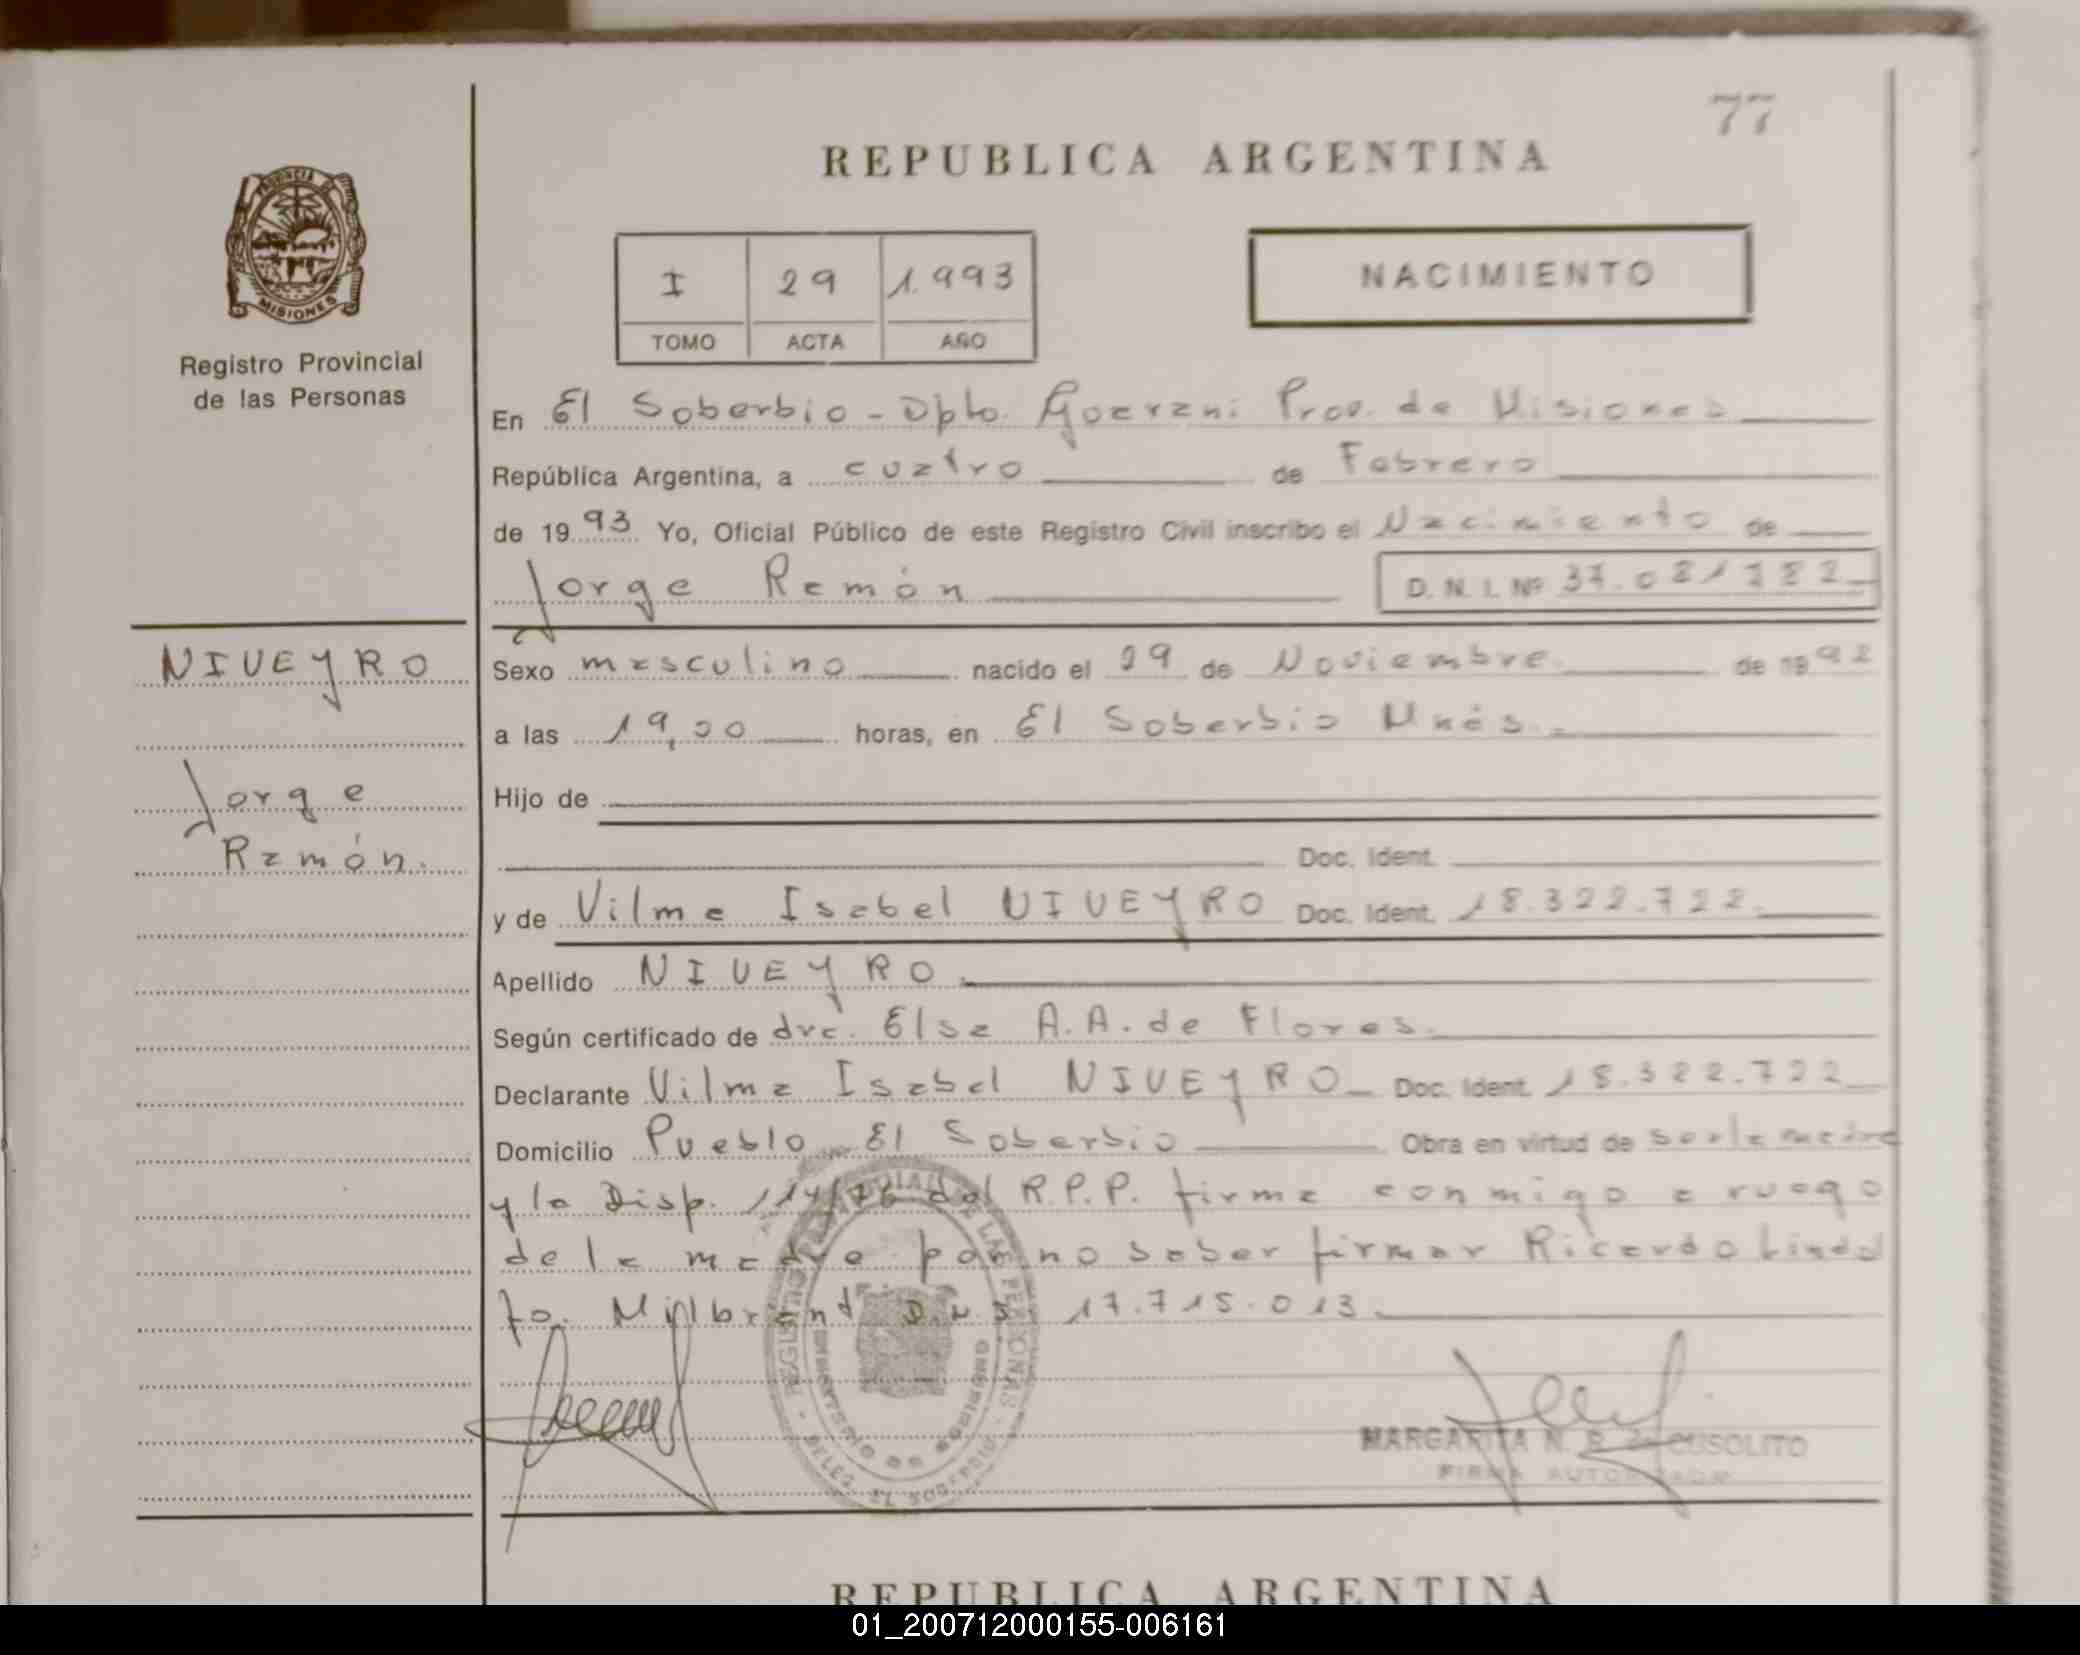 77
REPUBLICA ARGENTINA
PROVINCIA DE
MISIONES
Registro Provincial
de las Personas
I 29 1.993
TOMO ACTA AÑO
NACIMIENTO
En El Soberbio - Dpto. Guarani Prov. de Misiones
República Argentina, a cuatro de Febrero
de 1993 Yo, Oficial Público de este Registro Civil inscribo el Nacimiento de
Jorge Ramón
D. N. I. Nº 37.081
NIVEYRO
Jorge
Ramón.
Sexo masculino nacido el 29 de Noviembre de 1992
a las 19,00 horas, en El Soberbio Mnés.
Hijo de
Doc. Ident.
y de Vilma Isabel NIVEYRO Doc. Ident. 18.322.722
Apellido NIVEYRO
Según certificado de dra. Elsa A.A. de Flores.
Declarante Vilma Isabel NIVEYRO Doc. Ident. 18.322.722
Domicilio Pueblo El Soberbio Obra en virtud de ser la madre
y la Disp. 114/76 del R.P.P. firma conmigo a ruego
de la madre por no saber firmar Ricardo
Milbrant D.N.I. 17.715.013
REGISTRO PROVINCIAL DE LAS PERSONAS
DELEG. EL SOBERBIO
MARGARITA N. R. de CUSOLITO
FIRMA AUTORIZADA
REPUBLICA ARGENTINA
01_200712000155-006161